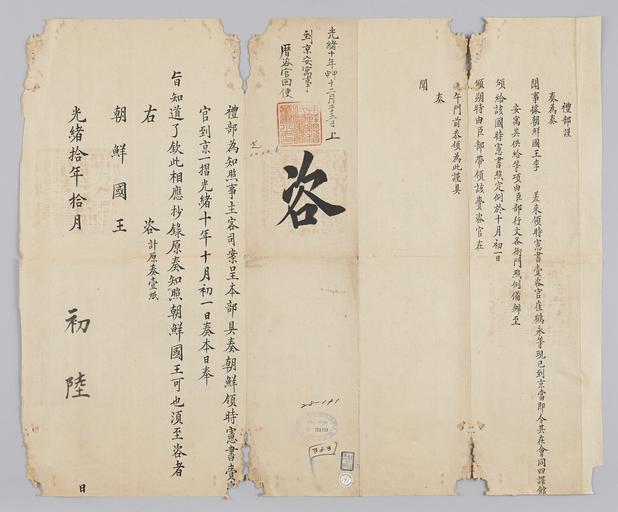 禮部謹
奏為奏
聞事據朝鮮國王李 差來領時憲書賫咨官
等現已到京當即令其在會同四譯館
安寓其供給等項由臣部行文各衙門照例備辦至
頒給該國時憲書照定例於十月初一日
頒朔時由臣部帶領該賫咨官在
午門前恭領為此謹具
奏
聞
光緒十年甲申十二月 日上
到京安寓事
曆咨官回便
咨
禮部為知照事主客司案呈本部具奏朝鮮領時憲書賫
官到京一摺光緒十年十月初一日奏本日奉
旨知道了欽此相應抄錄原奏知照朝鮮國王可也須至咨者
右 咨 計原奏壹紙
朝鮮國王
光緒拾年拾月 初陸 日
25-141
363